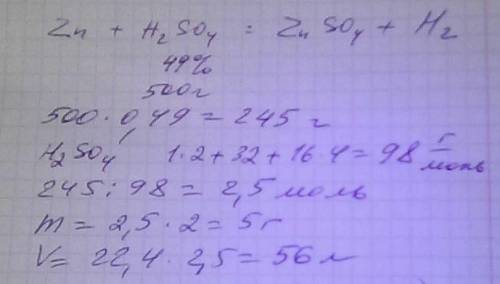 Zn + H₂SO₄ = ZnSO₄ + H₂
49%
500г
500·0,49 = 245 г
H₂SO₄ 1·2+32+16·4 = 98 г/моль
245 : 98 = 2,5 моль
m = 2,5·2 = 5г
V = 22,4·2,5 = 56 л